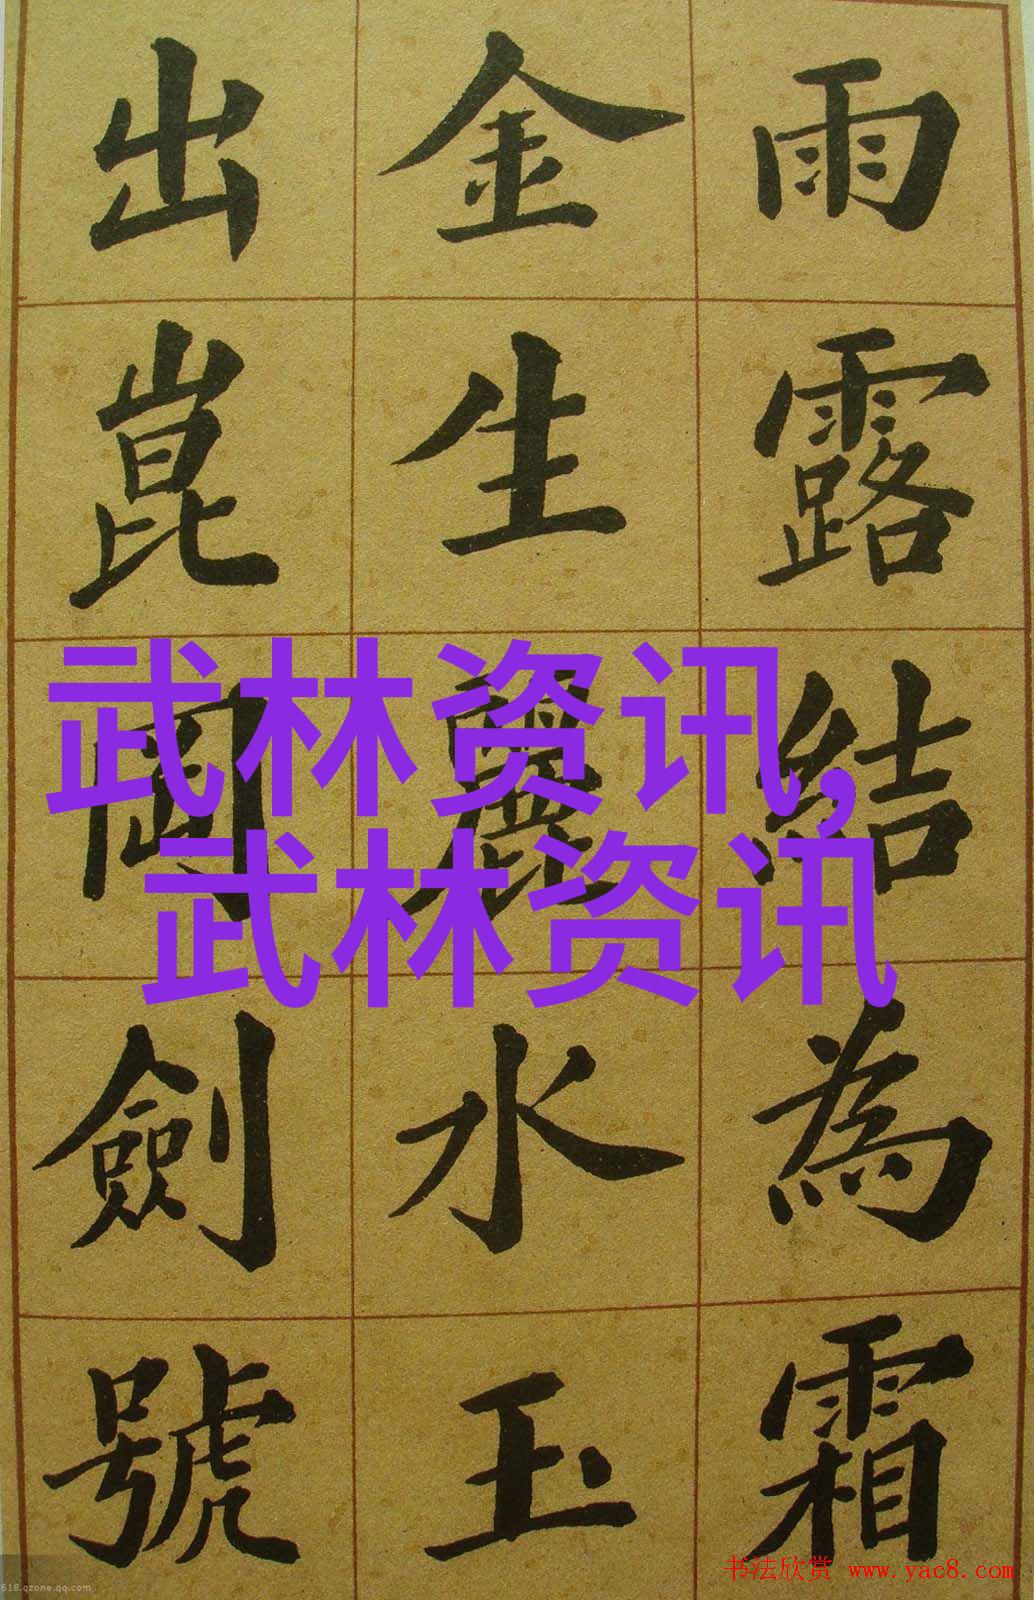 雨露結為霜
金生麗水玉
出崑岡劍號
武林资讯,
武林资讯
书法欣赏 www.yac8.com
618.qzone.qq.com